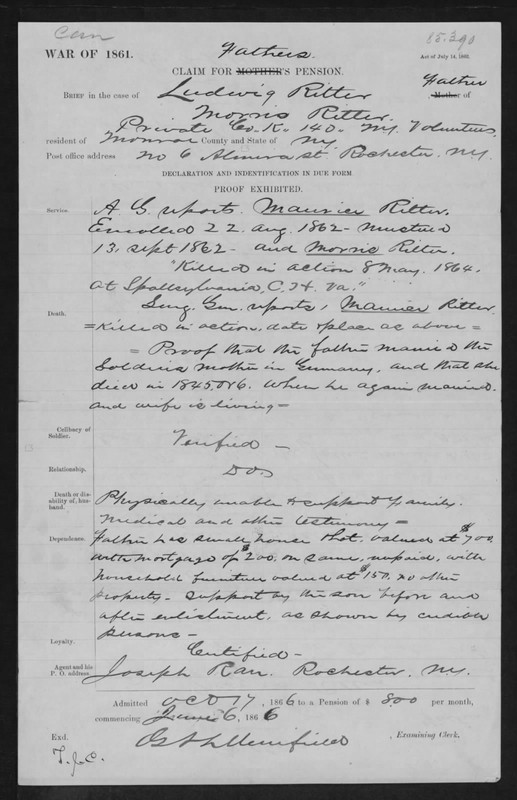 85.390
WAR OF 1861.
Act of July 14, 1862.
Fathers.
CLAIM FOR MOTHER'S PENSION.
BRIEF in the case of Ludwig Ritter Father Mother of
Morris Ritter.
Private Co. K. 140. NY. Volunteers,
resident of Monroe County and State of NY.
Post office address No 6 Almira st. Rochester. NY.
DECLARATION AND INDENTIFICATION IN DUE FORM
PROOF EXHIBITED.
Service. A. G. reports. Maurice Ritter.
Enrolled 22. Aug. 1862 - mustered
13. Sept 1862 - and Morris Ritter.
"Killed in action 8 May. 1864.
at Spottsylvania, C. H. Va."
Death. Surg. Gen. reports, Maurice Ritter
= Killed in action, date & place as above =
= Proof that the father married the
Soldiers mother in Germany, and that she
died in 1845, or 6. When he again married.
and wife is living =
Celibacy of Soldier. Verified -
Relationship. Do.
Death or disability of, husband. Physically unable to support family.
Medical and other testimony =
Dependence. Father has small house & lot, valued at $700,
with mortgage of $200, on same, unpaid, with
household furniture valued at $150. no other
property - support by the son before and
after enlistment, as shown by credible
persons -
Loyalty. Certified -
Agent and his P. O. address Joseph Rau. Rochester, NY.
Admitted Oct 17, 1866 to a Pension of $ 800 per month,
commencing June 6, 1866
Exd. , Examining Clerk.
T.J.C.